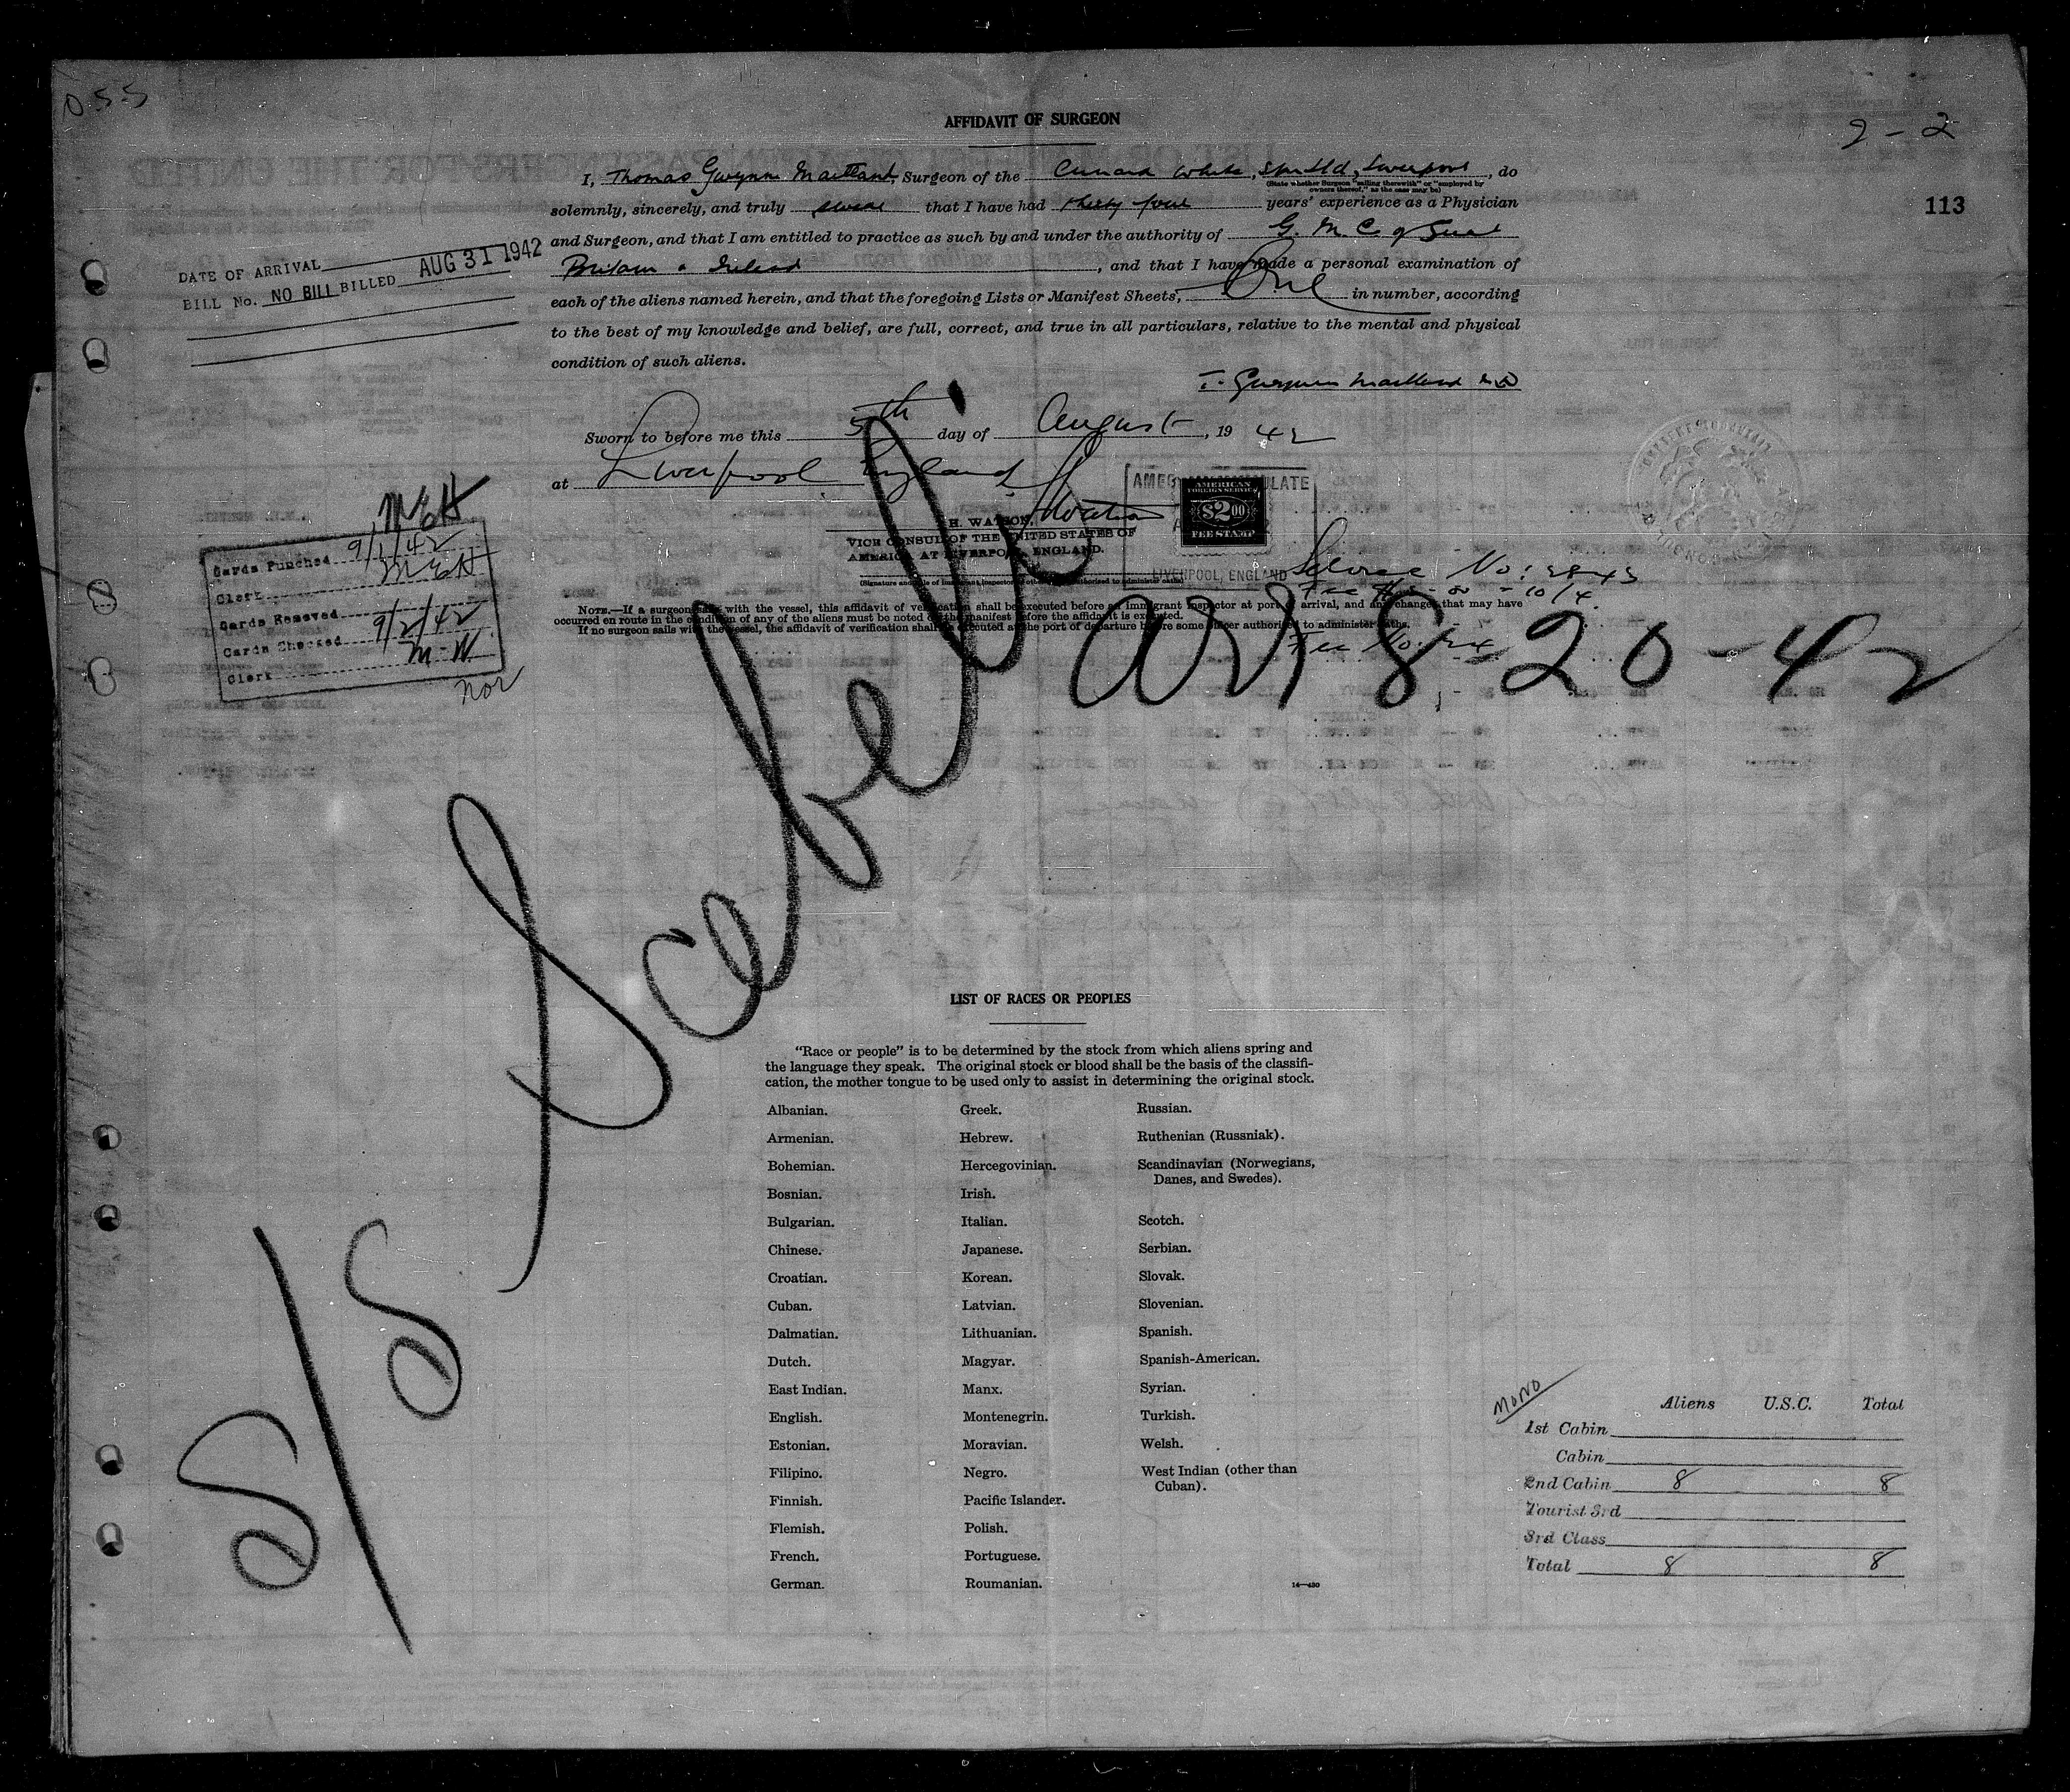 0.5.5
AFFIDAVIT OF SURGEON
2 - 2
I, Thomas Gwynne Maitland, Surgeon of the Cunard White, Star Ltd, Liverpool, do
(State whether Surgeon "sailing therewith" or "employed by
owners thereof," as the case may be)
113
solemnly, sincerely, and truly swear that I have had thirty four years' experience as a Physician
and Surgeon, and that I am entitled to practice as such by and under the authority of G. M. C. of Great
Britain & Ireland, and that I have made a personal examination of
each of the aliens named herein, and that the foregoing Lists or Manifest Sheets, One in number, according
to the best of my knowledge and belief, are full, correct, and true in all particulars, relative to the mental and physical
condition of such aliens.
DATE OF ARRIVAL
BILL No. NO BILL BILLED AUG 31 1942
T. Gwynne Maitland MD
Sworn to before me this 5th day of August, 19 42
at Liverpool England
H. WATSON,
VICE CONSUL OF THE UNITED STATES OF
AMERICA AT LIVERPOOL, ENGLAND.
AMERICAN
FOREIGN SERVICE
$2.00
FEE STAMP
LIVERPOOL, ENGLAND
Service No:
Fee No:
NOTE.—If a surgeon sails with the vessel, this affidavit of verification shall be executed before an immigrant inspector at port of arrival, and any changes that may have
occurred en route in the condition of any of the aliens must be noted on the manifest before the affidavit is executed.
If no surgeon sails with the vessel, the affidavit of verification shall be executed at the port of departure before some officer authorized to administer oaths.
MEH
Cards Punched 9/1/42
Clerk MEH
Cards Removed
Cards Checked 9/2/42
Clerk M-W
Nor
arr 8-20-42
S/S Scebeli
LIST OF RACES OR PEOPLES
"Race or people" is to be determined by the stock from which aliens spring and
the language they speak. The original stock or blood shall be the basis of the classifi-
cation, the mother tongue to be used only to assist in determining the original stock.
Albanian. Greek. Russian.
Armenian. Hebrew. Ruthenian (Russniak).
Bohemian. Hercegovinian. Scandinavian (Norwegians,
Danes, and Swedes).
Bosnian. Irish.
Bulgarian. Italian. Scotch.
Chinese. Japanese. Serbian.
Croatian. Korean. Slovak.
Cuban. Latvian. Slovenian.
Dalmatian. Lithuanian. Spanish.
Dutch. Magyar. Spanish-American.
East Indian. Manx. Syrian.
English. Montenegrin. Turkish.
Estonian. Moravian. Welsh.
Filipino. Negro. West Indian (other than
Cuban).
Finnish. Pacific Islander.
Flemish. Polish.
French. Portuguese.
German. Roumanian.
14—430
MONO
Aliens U.S.C. Total
1st Cabin
Cabin
2nd Cabin 8 8
Tourist 3rd
3rd Class
Total 8 8